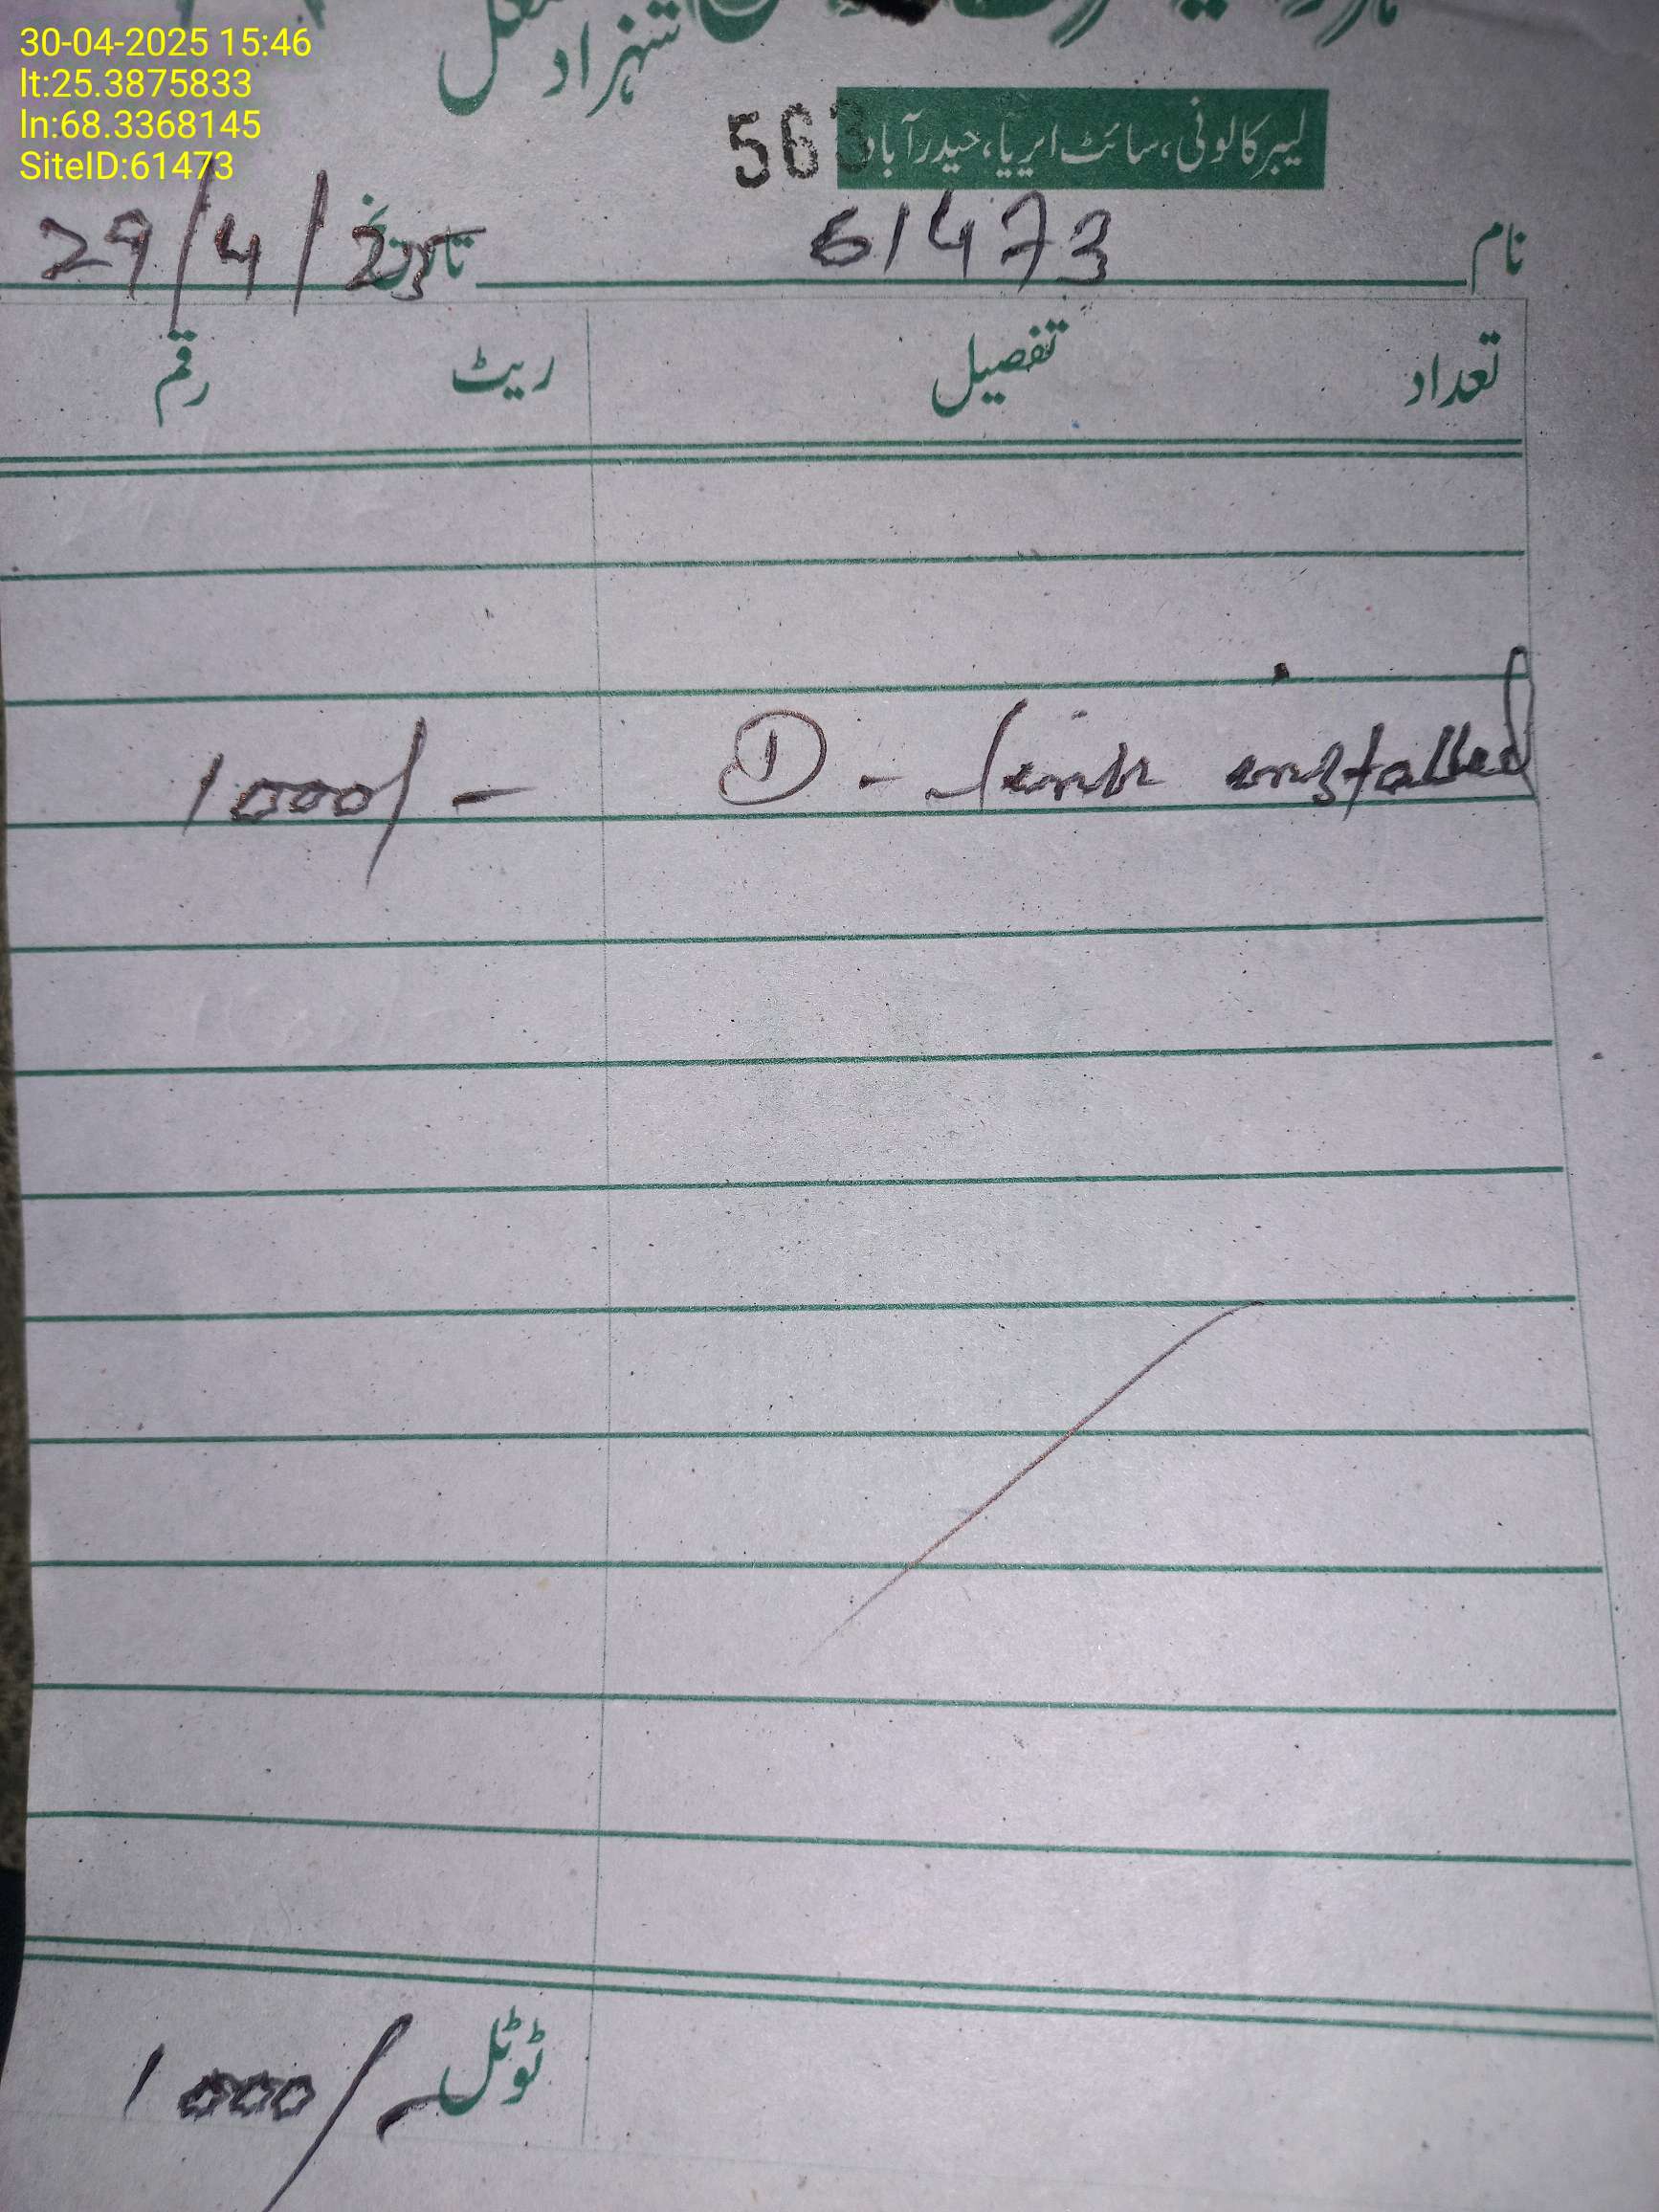 30-04-2025 15:46
lt:25.3875833
ln:68.3368145
SiteID:61473
شہزاد
563
لیبر کالونی، سائٹ ایریا، حیدرآباد
نام 61473 تاریخ 29/4/25
تعداد تفصیل ریٹ رقم
① - installed 1000/-
ٹوٹل 1000/-